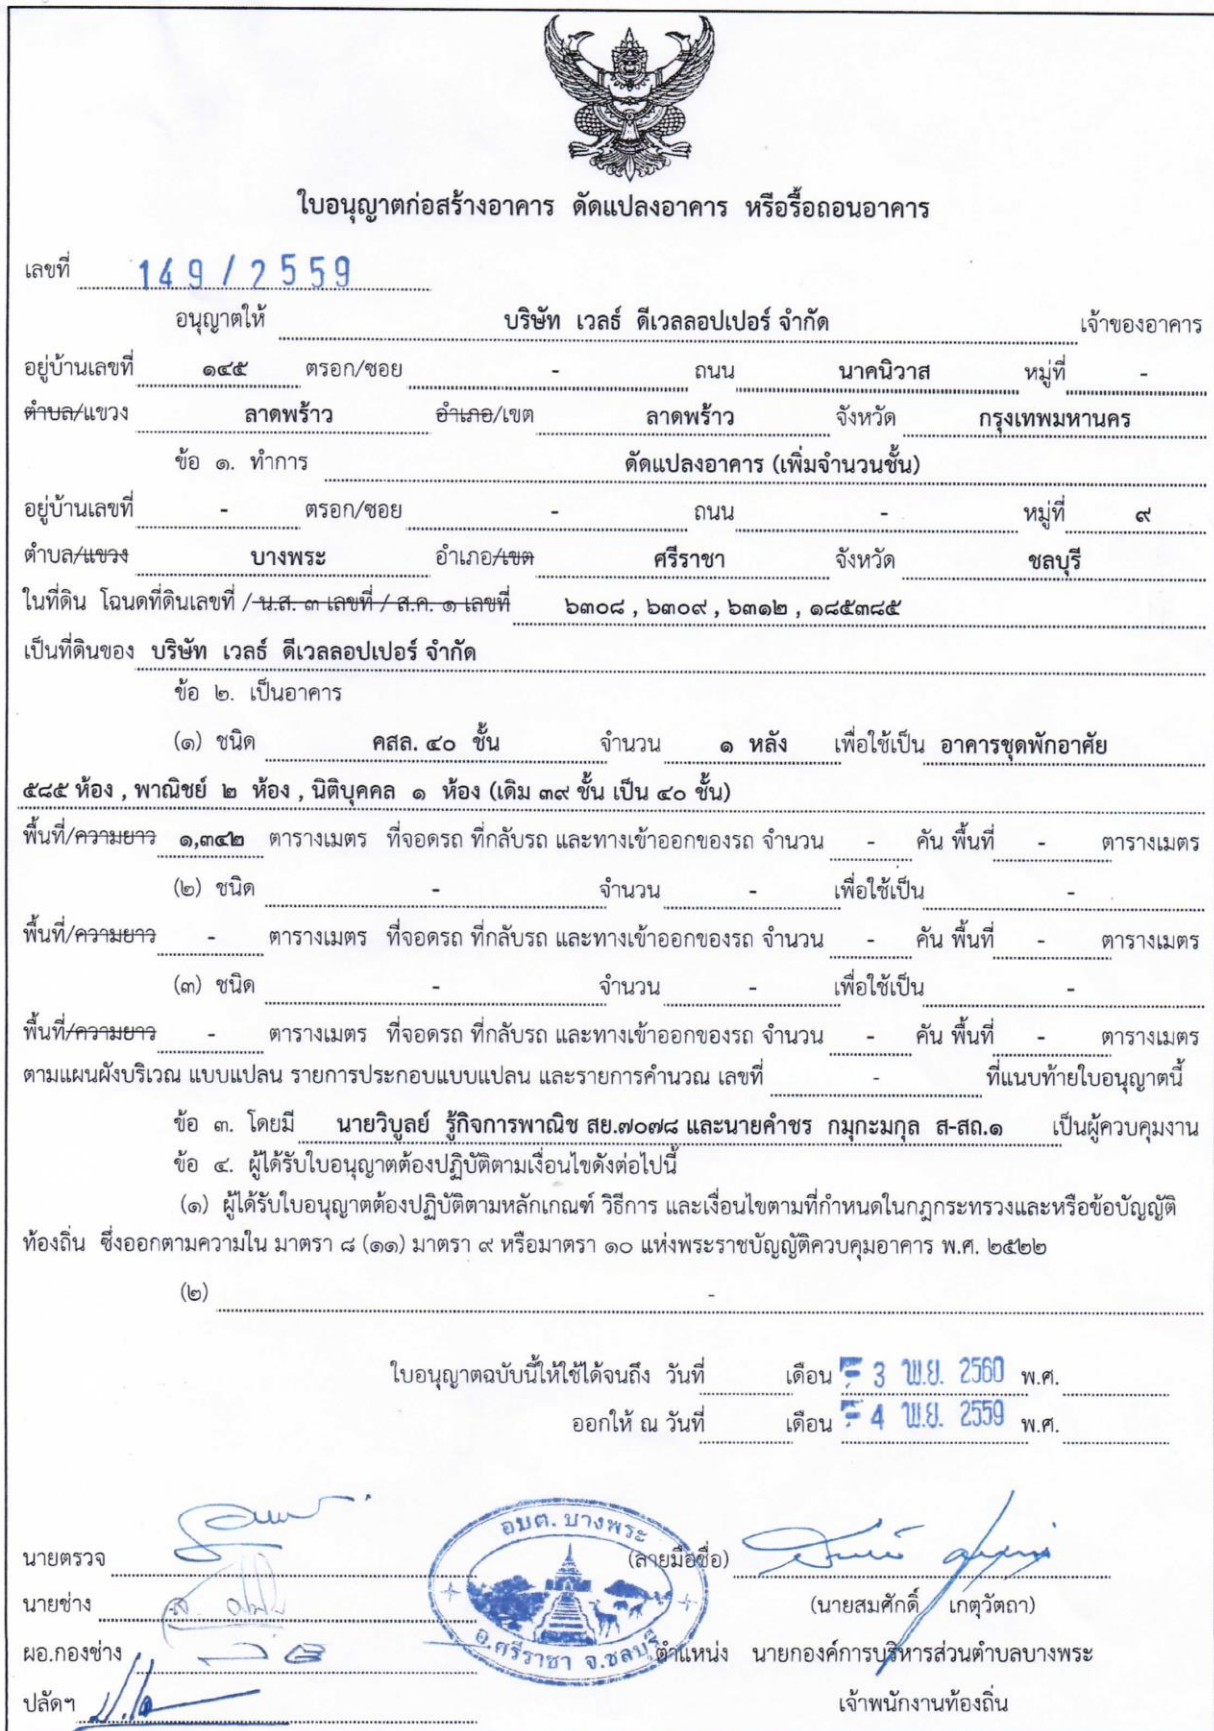 ใบอนุญาตก่อสร้างอาคาร ดัดแปลงอาคาร หรือรื้อถอนอาคาร
เลขที่ 149/2559
อนุญาตให้ บริษัท เวลธ์ ดีเวลลอปเปอร์ จำกัด เจ้าของอาคาร
อยู่บ้านเลขที่ ๑๔๕ ตรอก/ซอย - ถนน นาคนิวาส หมู่ที่ -
ตำบล/แขวง ลาดพร้าว อำเภอ/เขต ลาดพร้าว จังหวัด กรุงเทพมหานคร
ข้อ ๑. ทำการ ดัดแปลงอาคาร (เพิ่มจำนวนชั้น)
อยู่บ้านเลขที่ - ตรอก/ซอย - ถนน - หมู่ที่ ๙
ตำบล/แขวง บางพระ อำเภอ/เขต ศรีราชา จังหวัด ชลบุรี
ในที่ดิน โฉนดที่ดินเลขที่ / น.ส. ๓ เลขที่ / ส.ค. ๑ เลขที่ ๖๓๐๘ , ๖๓๐๙ , ๖๓๑๒ , ๑๘๕๓๘๕
เป็นที่ดินของ บริษัท เวลธ์ ดีเวลลอปเปอร์ จำกัด
ข้อ ๒. เป็นอาคาร
(๑) ชนิด คสล. ๔๐ ชั้น จำนวน ๑ หลัง เพื่อใช้เป็น อาคารชุดพักอาศัย
๕๘๕ ห้อง , พาณิชย์ ๒ ห้อง , นิติบุคคล ๑ ห้อง (เดิม ๓๙ ชั้น เป็น ๔๐ ชั้น)
พื้นที่/ความยาว ๑,๓๔๒ ตารางเมตร ที่จอดรถ ที่กลับรถ และทางเข้าออกของรถ จำนวน - คัน พื้นที่ - ตารางเมตร
(๒) ชนิด - จำนวน - เพื่อใช้เป็น -
พื้นที่/ความยาว - ตารางเมตร ที่จอดรถ ที่กลับรถ และทางเข้าออกของรถ จำนวน - คัน พื้นที่ - ตารางเมตร
(๓) ชนิด - จำนวน - เพื่อใช้เป็น -
พื้นที่/ความยาว - ตารางเมตร ที่จอดรถ ที่กลับรถ และทางเข้าออกของรถ จำนวน - คัน พื้นที่ - ตารางเมตร
ตามแผนผังบริเวณ แบบแปลน รายการประกอบแบบแปลน และรายการคำนวณ เลขที่ - ที่แนบท้ายใบอนุญาตนี้
ข้อ ๓. โดยมี นายวิบูลย์ รู้กิจการพาณิช สย.๗๐๗๘ และนายคำชร กมุกะมกุล ส-สถ.๑ เป็นผู้ควบคุมงาน
ข้อ ๔. ผู้ได้รับใบอนุญาตต้องปฏิบัติตามเงื่อนไขดังต่อไปนี้
(๑) ผู้ได้รับใบอนุญาตต้องปฏิบัติตามหลักเกณฑ์ วิธีการ และเงื่อนไขตามที่กำหนดในกฎกระทรวงและหรือข้อบัญญัติ
ท้องถิ่น ซึ่งออกตามความใน มาตรา ๘ (๑๑) มาตรา ๙ หรือมาตรา ๑๐ แห่งพระราชบัญญัติควบคุมอาคาร พ.ศ. ๒๕๒๒
(๒) -
ใบอนุญาตฉบับนี้ให้ใช้ได้จนถึง วันที่ เดือน - 3 พ.ย. 2560 พ.ศ.
ออกให้ ณ วันที่ เดือน - 4 พ.ย. 2559 พ.ศ.
อบต. บางพระ
อ.ศรีราชา จ.ชลบุรี
นายตรวจ (ลายมือชื่อ)
นายช่าง (นายสมศักดิ์ เกตุวัตถา)
ผอ.กองช่าง ตำแหน่ง นายกองค์การบริหารส่วนตำบลบางพระ
ปลัดฯ เจ้าพนักงานท้องถิ่น